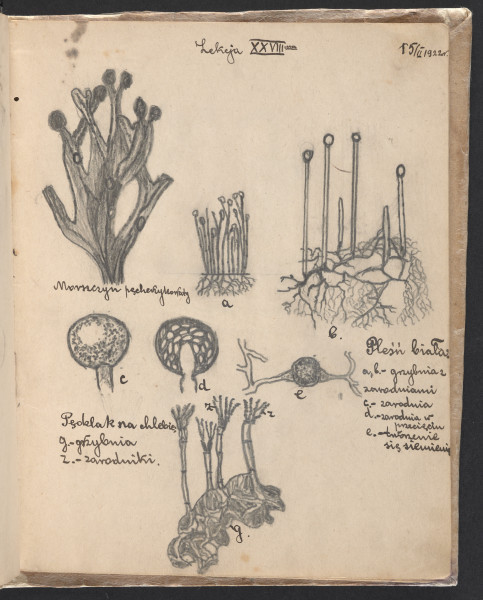 Lekcja XXVIII-ma
15/II 1922r.
Morszczyn pęcherzykowaty
a
b.
c
d
e
Pleśń biała:
a, b - grzybnia z
zarodniami
c, - zarodnia
d. - zarodnia w
przecięciu
e. - tworzenie
się
Pędzlak na chlebie
g. - grzybnia
z. - zarodniki.
z
z
g.